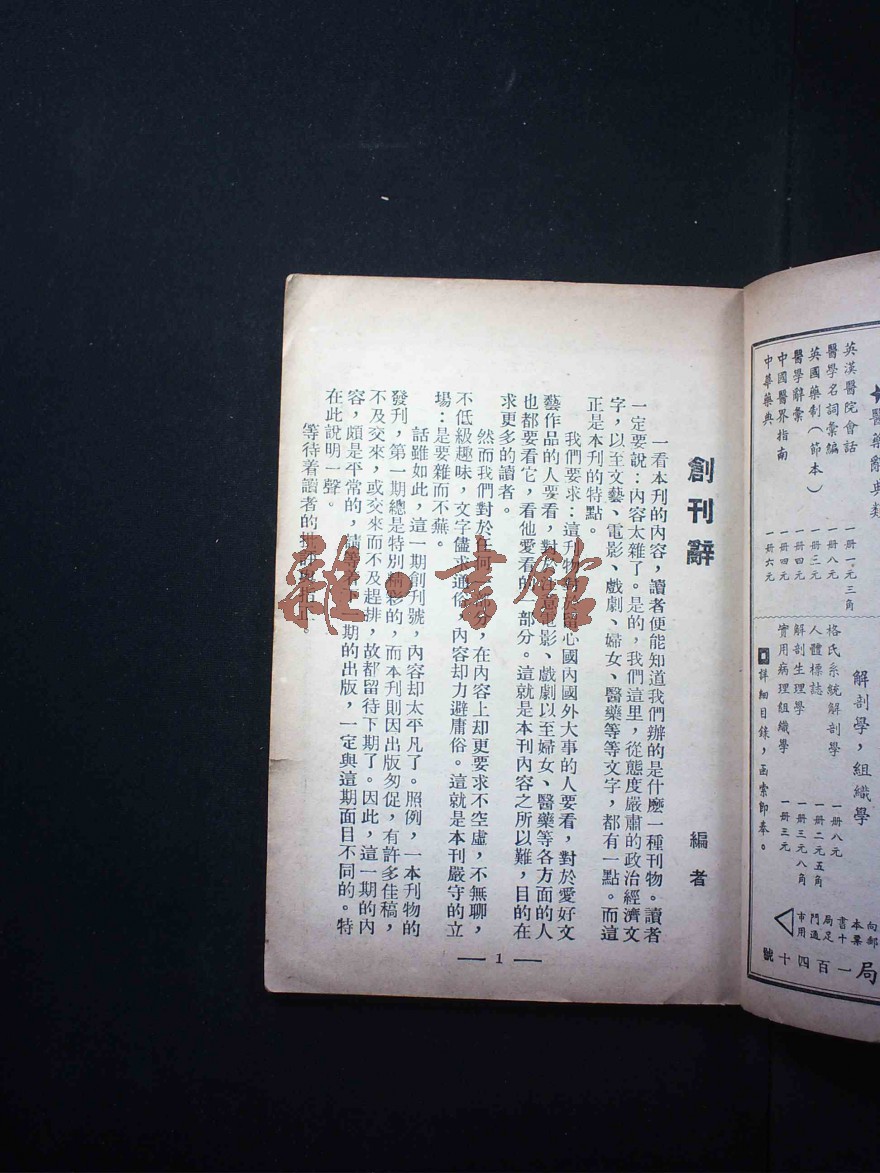 創刊辭
編者
一看本刊的內容，讀者便能知道我們辦的是什麼一種刊物。讀者
一定要說：內容太雜了。是的，我們這里，從態度嚴肅的政治經濟文
字，以至文藝、電影、戲劇、婦女、醫藥等等文字，都有一點。而這
正是本刊的特點。
我們要求：這刊物對於留心國內國外大事的人要看，對於愛好文
藝作品的人要看，對於電影、戲劇以至婦女、醫藥等各方面的人
也都要看它，看他愛看的一部分。這就是本刊內容之所以難，目的在
求更多的讀者。
然而我們對於任何部分，在內容上却更要求不空虛，不無聊，
不低級趣味，文字儘求通俗，內容却力避庸俗。這就是本刊嚴守的立
場：是要雜而不蕪。
話雖如此，這一期創刊號，內容却太平凡了。照例，一本刊物的
發刊，第一期總是特別精彩的，而本刊則因出版匆促，有許多佳稿，
不及交來，或交來而不及趕排，故都留待下期了。因此，這一期的內
容，頗是平常的，期的出版，一定與這期面目不同的。特
在此說明一聲。
等待着讀者的批
— 1 —
雜·書館
醫藥辭典類
英漢醫院會話 一冊一元三角
醫學名詞彙編 一冊八元
英國藥制（節本） 一冊三元
醫學辭彙 一冊四元
中國醫界指南 一冊四元
中華藥典 一冊六元
解剖學，組織學
格氏系統解剖學 一冊八元
人體標誌 一冊二元五角
解剖生理學 一冊三元八角
實用病理組織學 一冊三元
詳細目錄，函索即奉。
向郵
本票
書十
局足
門通
市用
局一百四十號